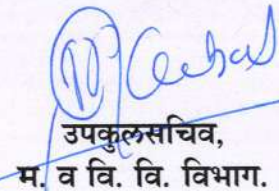 उपकुलसचिव,
म. व वि. वि. विभाग.